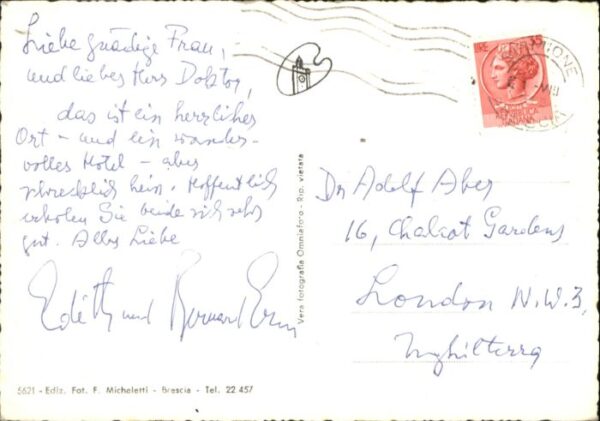 Liebe gnädige Frau,
und lieber Herr Doktor,
das ist ein herrliches
Ort – und ein wunder-
volles Hotel – aber
schrecklich heiss. Hoffentlich
erholen Sie beide sich sehr
gut. Alles Liebe
Edith und Bernard
5621 - Ediz. Fot. F. Micheletti - Brescia - Tel. 22 457
Vera fotografia Omniafoto - Rip. vietata
LIRE
REPUBBLICA
ITALIANA
Dr Adolf Aber
16, Chalcot Gardens
London N.W.3,
Inghilterra